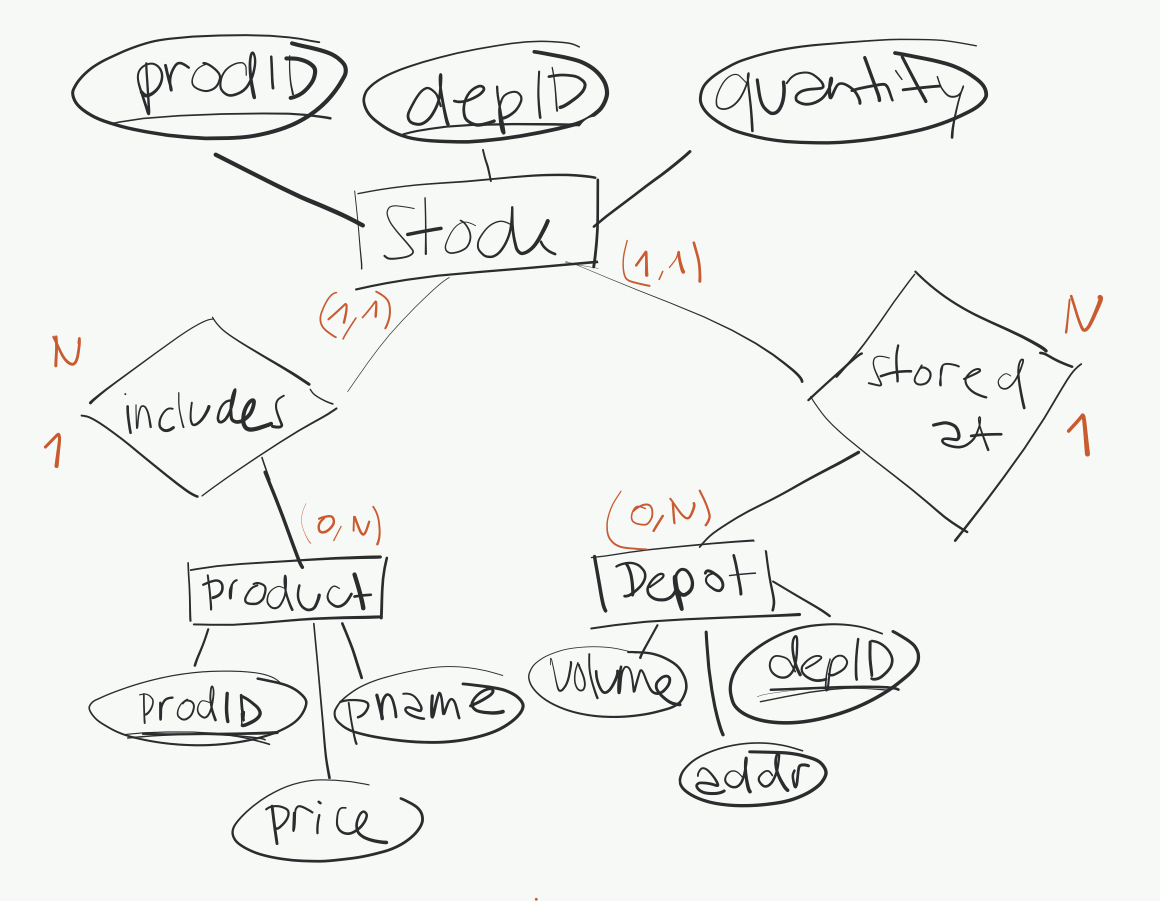 prodID
depID
quantity
Stock
(1,1)
(1,1)
N
includes
1
N
stored
at
1
(0,N)
(0,N)
product
Depot
prodID
pname
price
volume
depID
addr